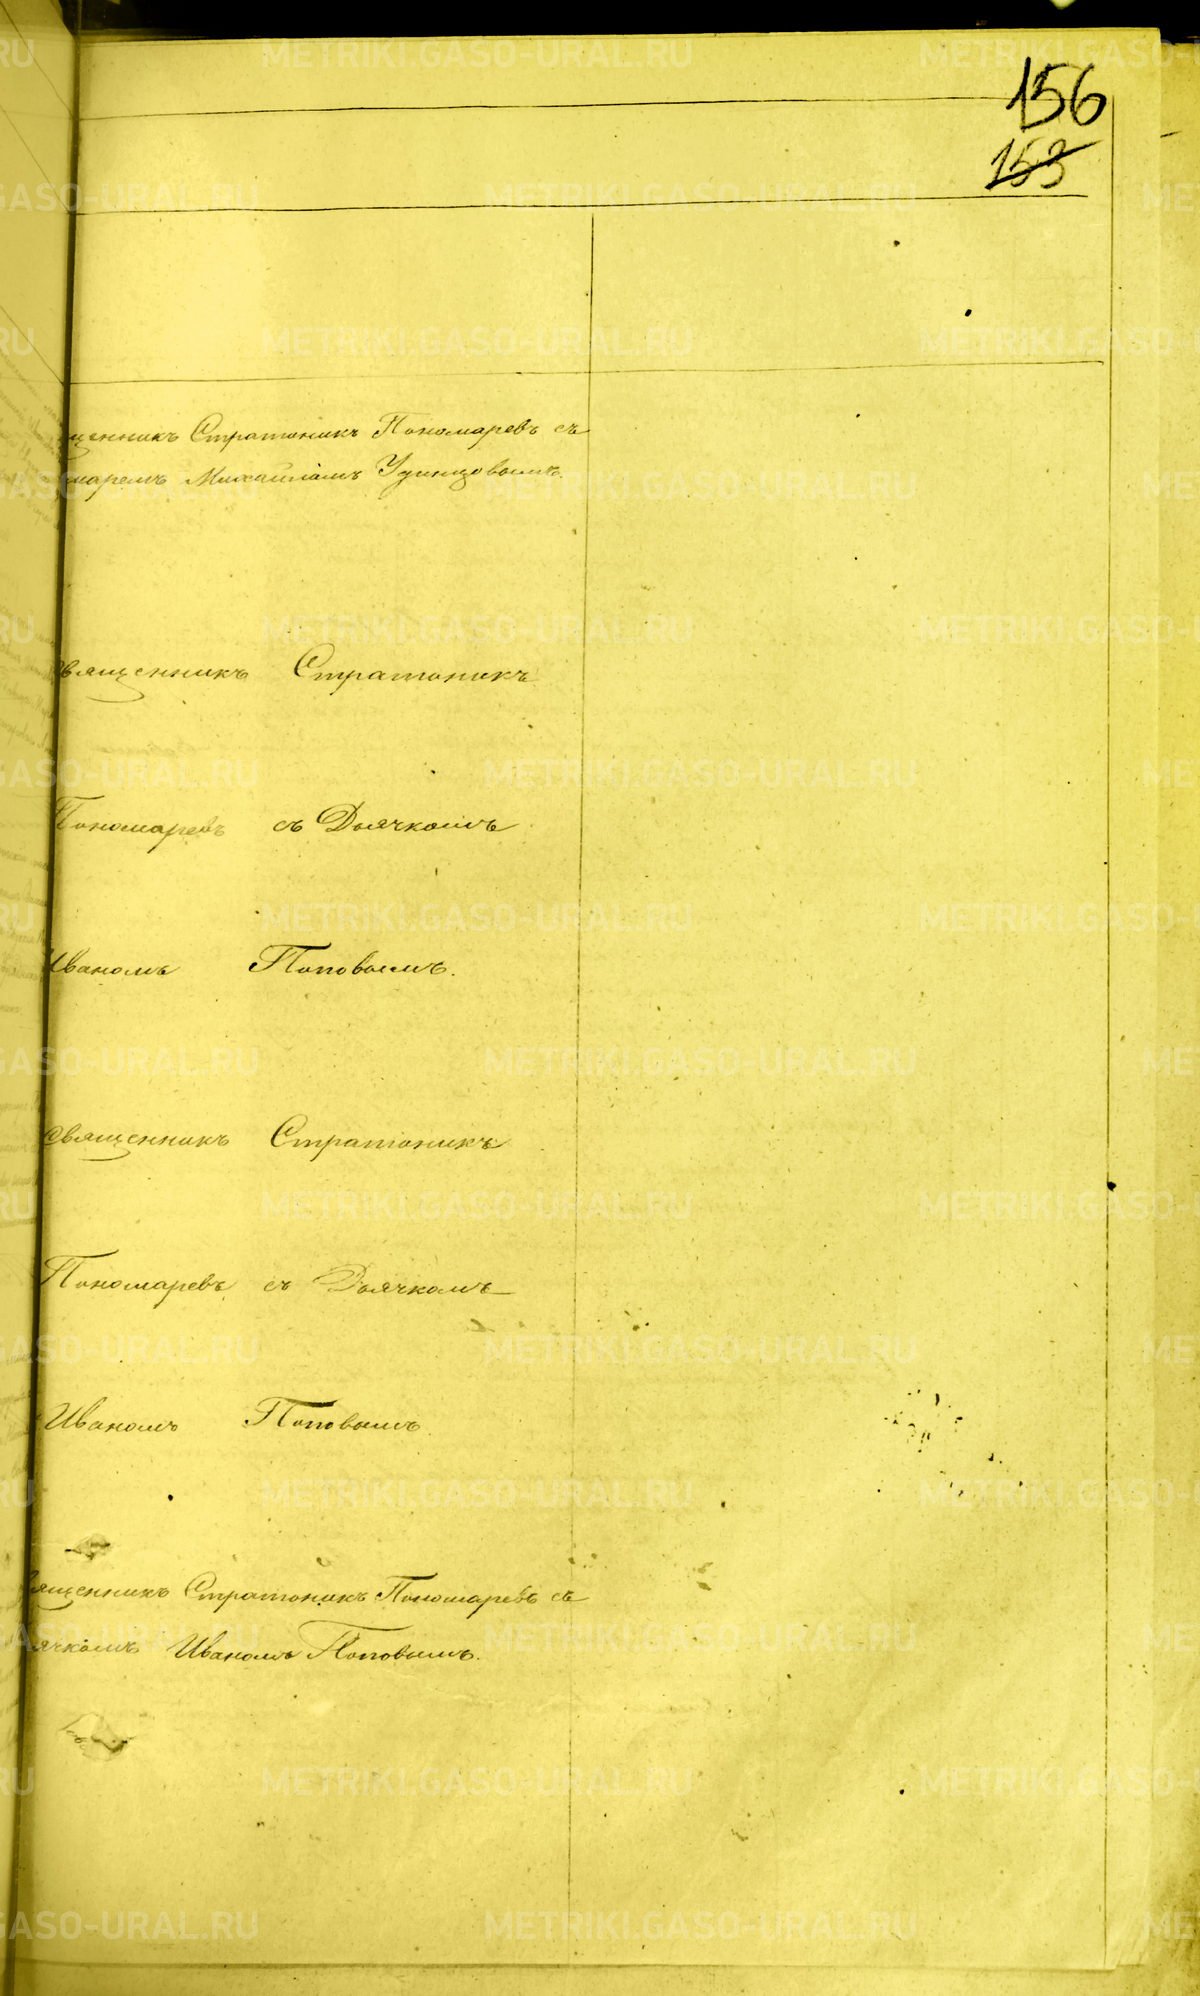 156
153
щенникъ Стратоникъ Пономаревъ съ
маремъ Михаиломъ Удинцовымъ.
вященникъ Стратоникъ
Пономаревъ съ Дьячкомъ
Иваномъ Поповымъ.
Священникъ Стратоникъ
Пономаревъ съ Дьячкомъ
Иваномъ Поповымъ
ященникъ Стратоникъ Пономаревъ съ
ячкомъ Иваномъ Поповымъ.
METRIKI.GASO-URAL.RU